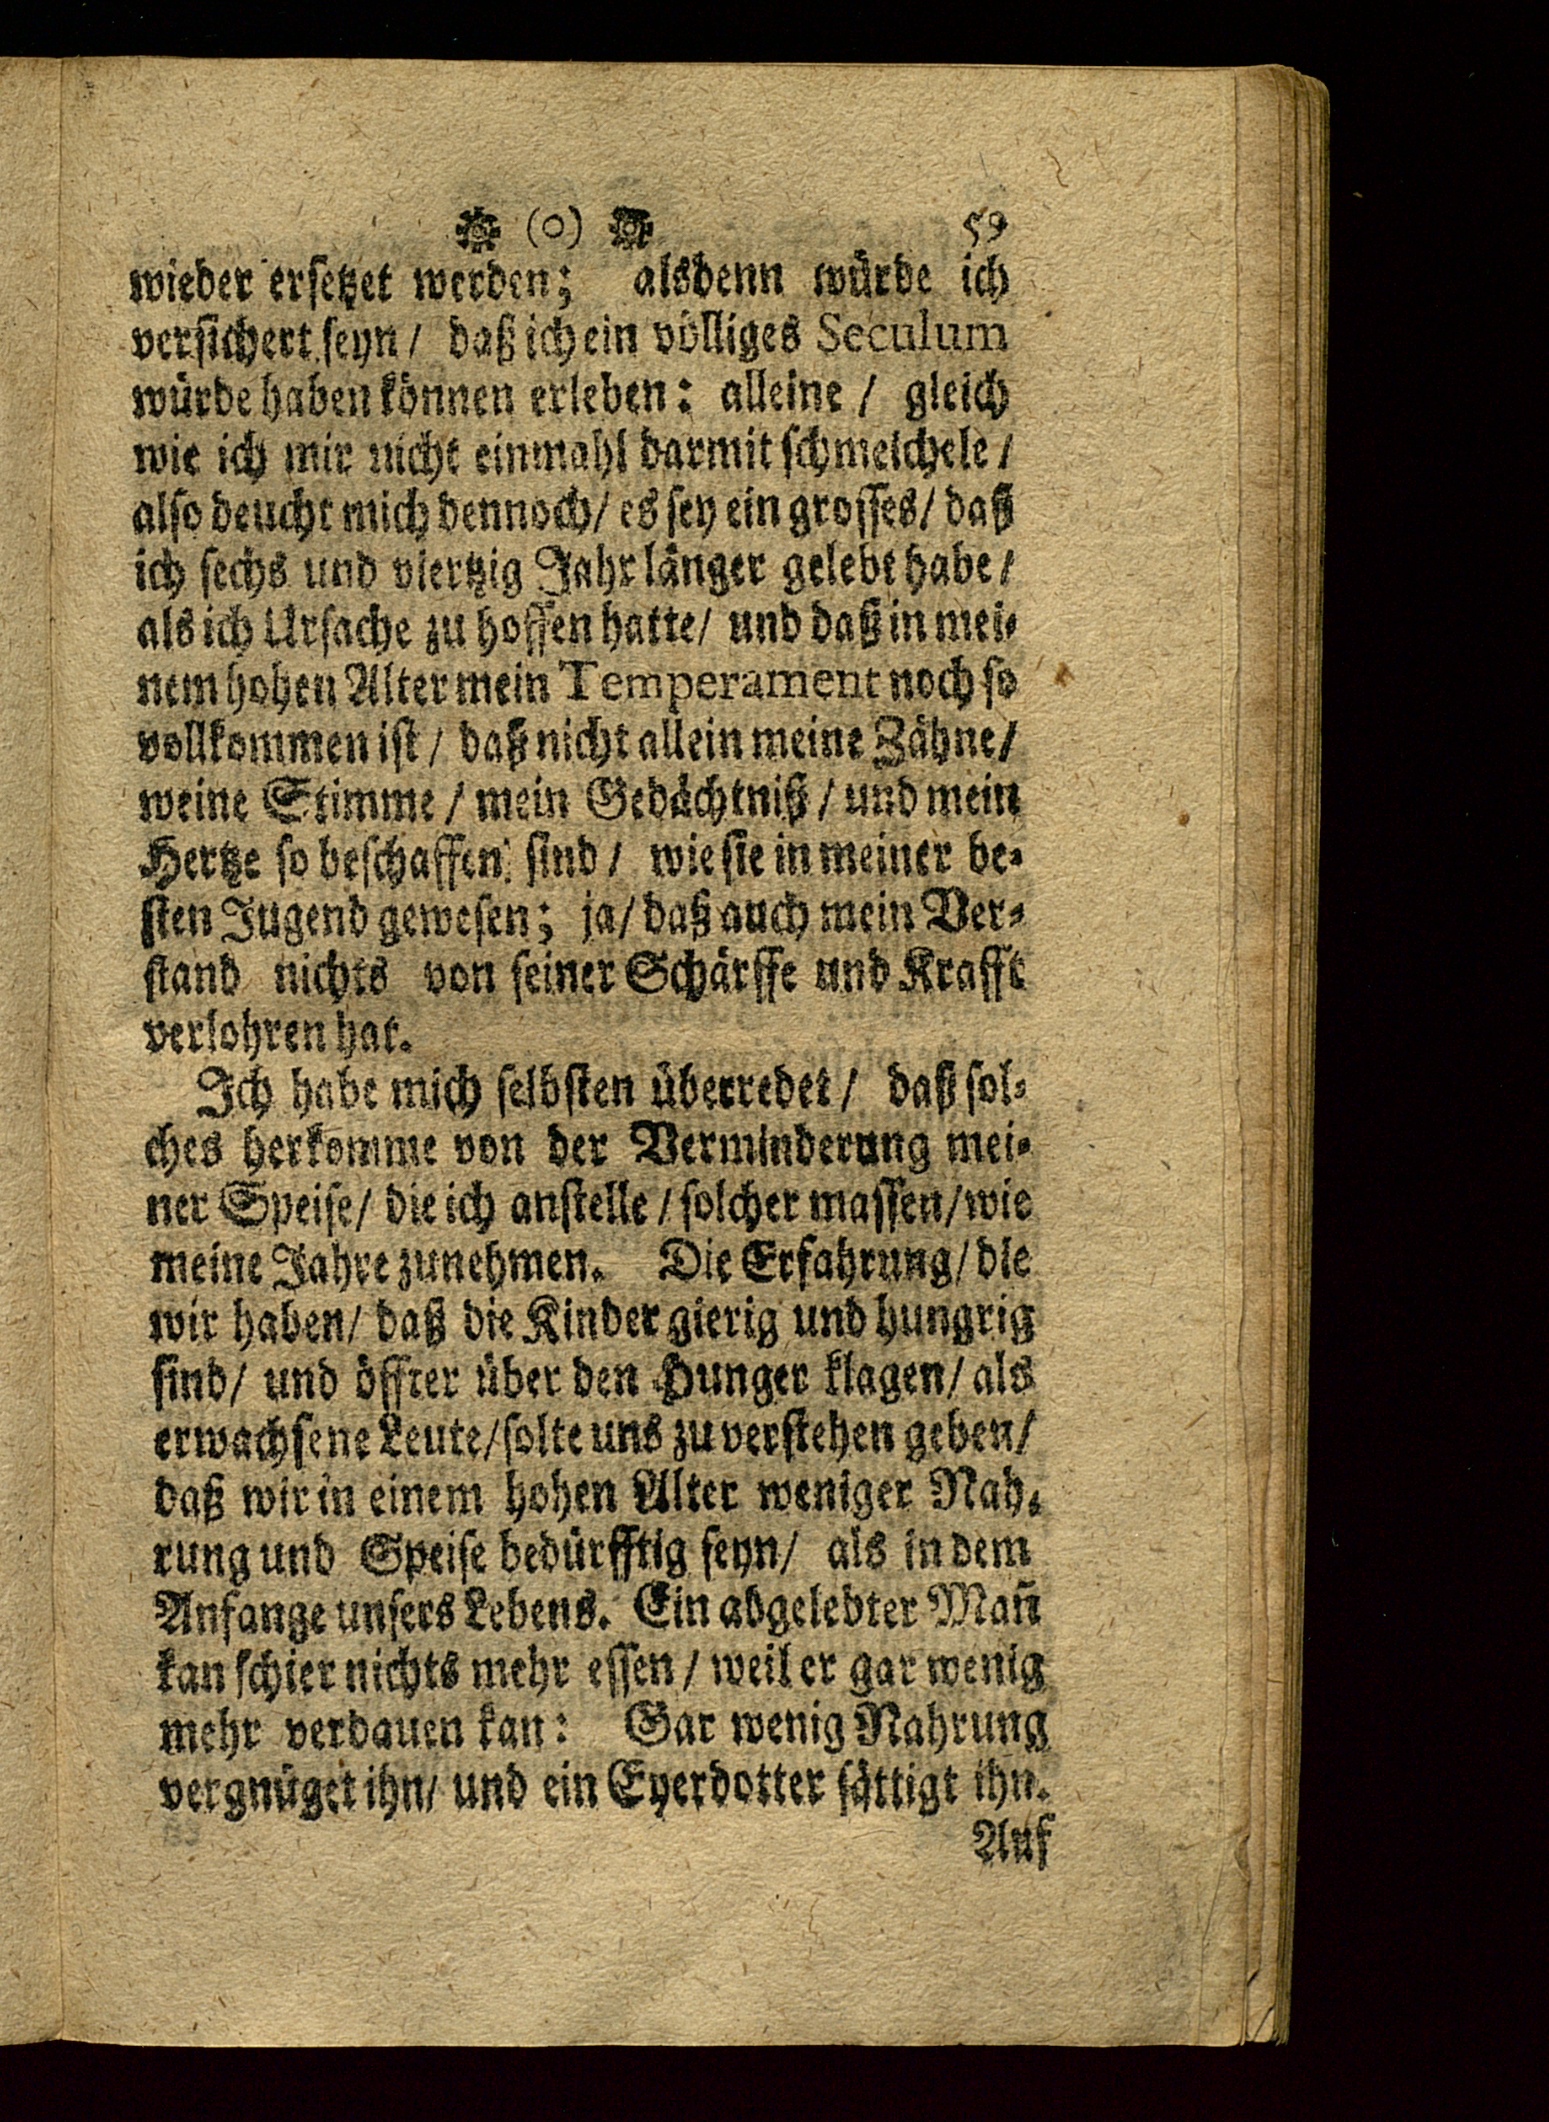 (o) 59
wieder ersetzet werden; alsdenn würde ich
versichert seyn / daß ich ein völliges Seculum
würde haben können erleben: alleine / gleich
wie ich mir nicht einmahl darmit schmeichele /
also deucht mich dennoch / es sey ein grosses / daß
ich sechs und viertzig Jahr länger gelebt habe /
als ich Ursache zu hoffen hatte / und daß in mei-
nem hohen Alter mein Temperament noch so
vollkommen ist / daß nicht allein meine Zähne /
weine Stimme / mein Gedächtniß / und mein
Hertze so beschaffen sind / wie sie in meiner be-
sten Jugend gewesen; ja / daß auch mein Ver-
stand nichts von seiner Schärffe und Krafft
verlohren hat.
Ich habe mich selbsten überredet / daß sol-
ches herkomme von der Verminderung mei-
ner Speise / die ich anstelle / solcher massen / wie
meine Jahre zunehmen. Die Erfahrung / die
wir haben / daß die Kinder gierig und hungrig
sind / und öffter über den Hunger klagen / als
erwachsene Leute / solte uns zu verstehen geben /
daß wir in einem hohen Alter weniger Nah-
rung und Speise bedürfftig seyn / als in dem
Anfange unsers Lebens. Ein abgelebter Mañ
kan schier nichts mehr essen / weil er gar wenig
mehr verdauen kan: Gar wenig Nahrung
vergnüget ihn / und ein Eyerdotter sättigt ihn.
Auf